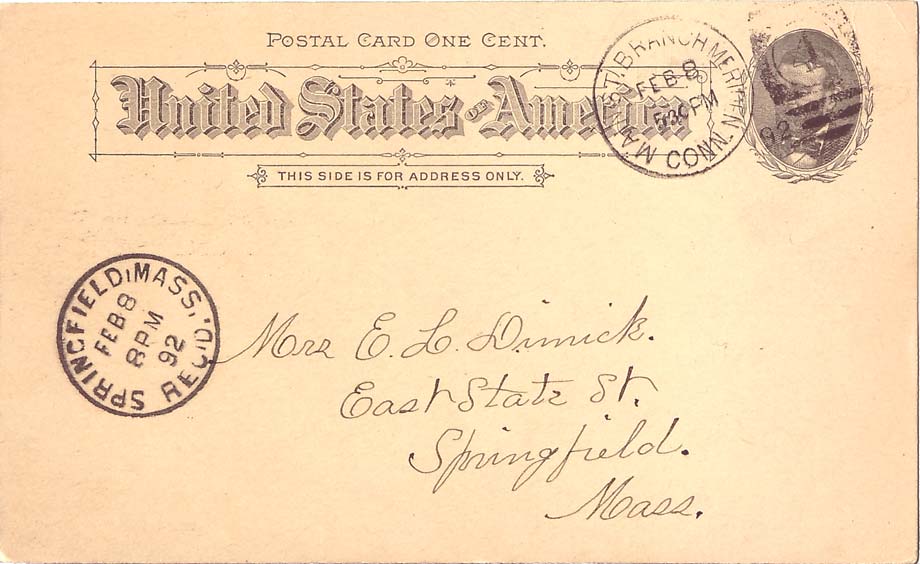 POSTAL CARD ONE CENT.
United States OF America
THIS SIDE IS FOR ADDRESS ONLY.
MAIN ST. BRANCH MERIDEN CONN
FEB 8
530PM
92
4
SPRINGFIELD, MASS. REC'D
FEB 8
8 PM
92
Mrs E. L. Dimick.
East State St.
Springfield.
Mass.